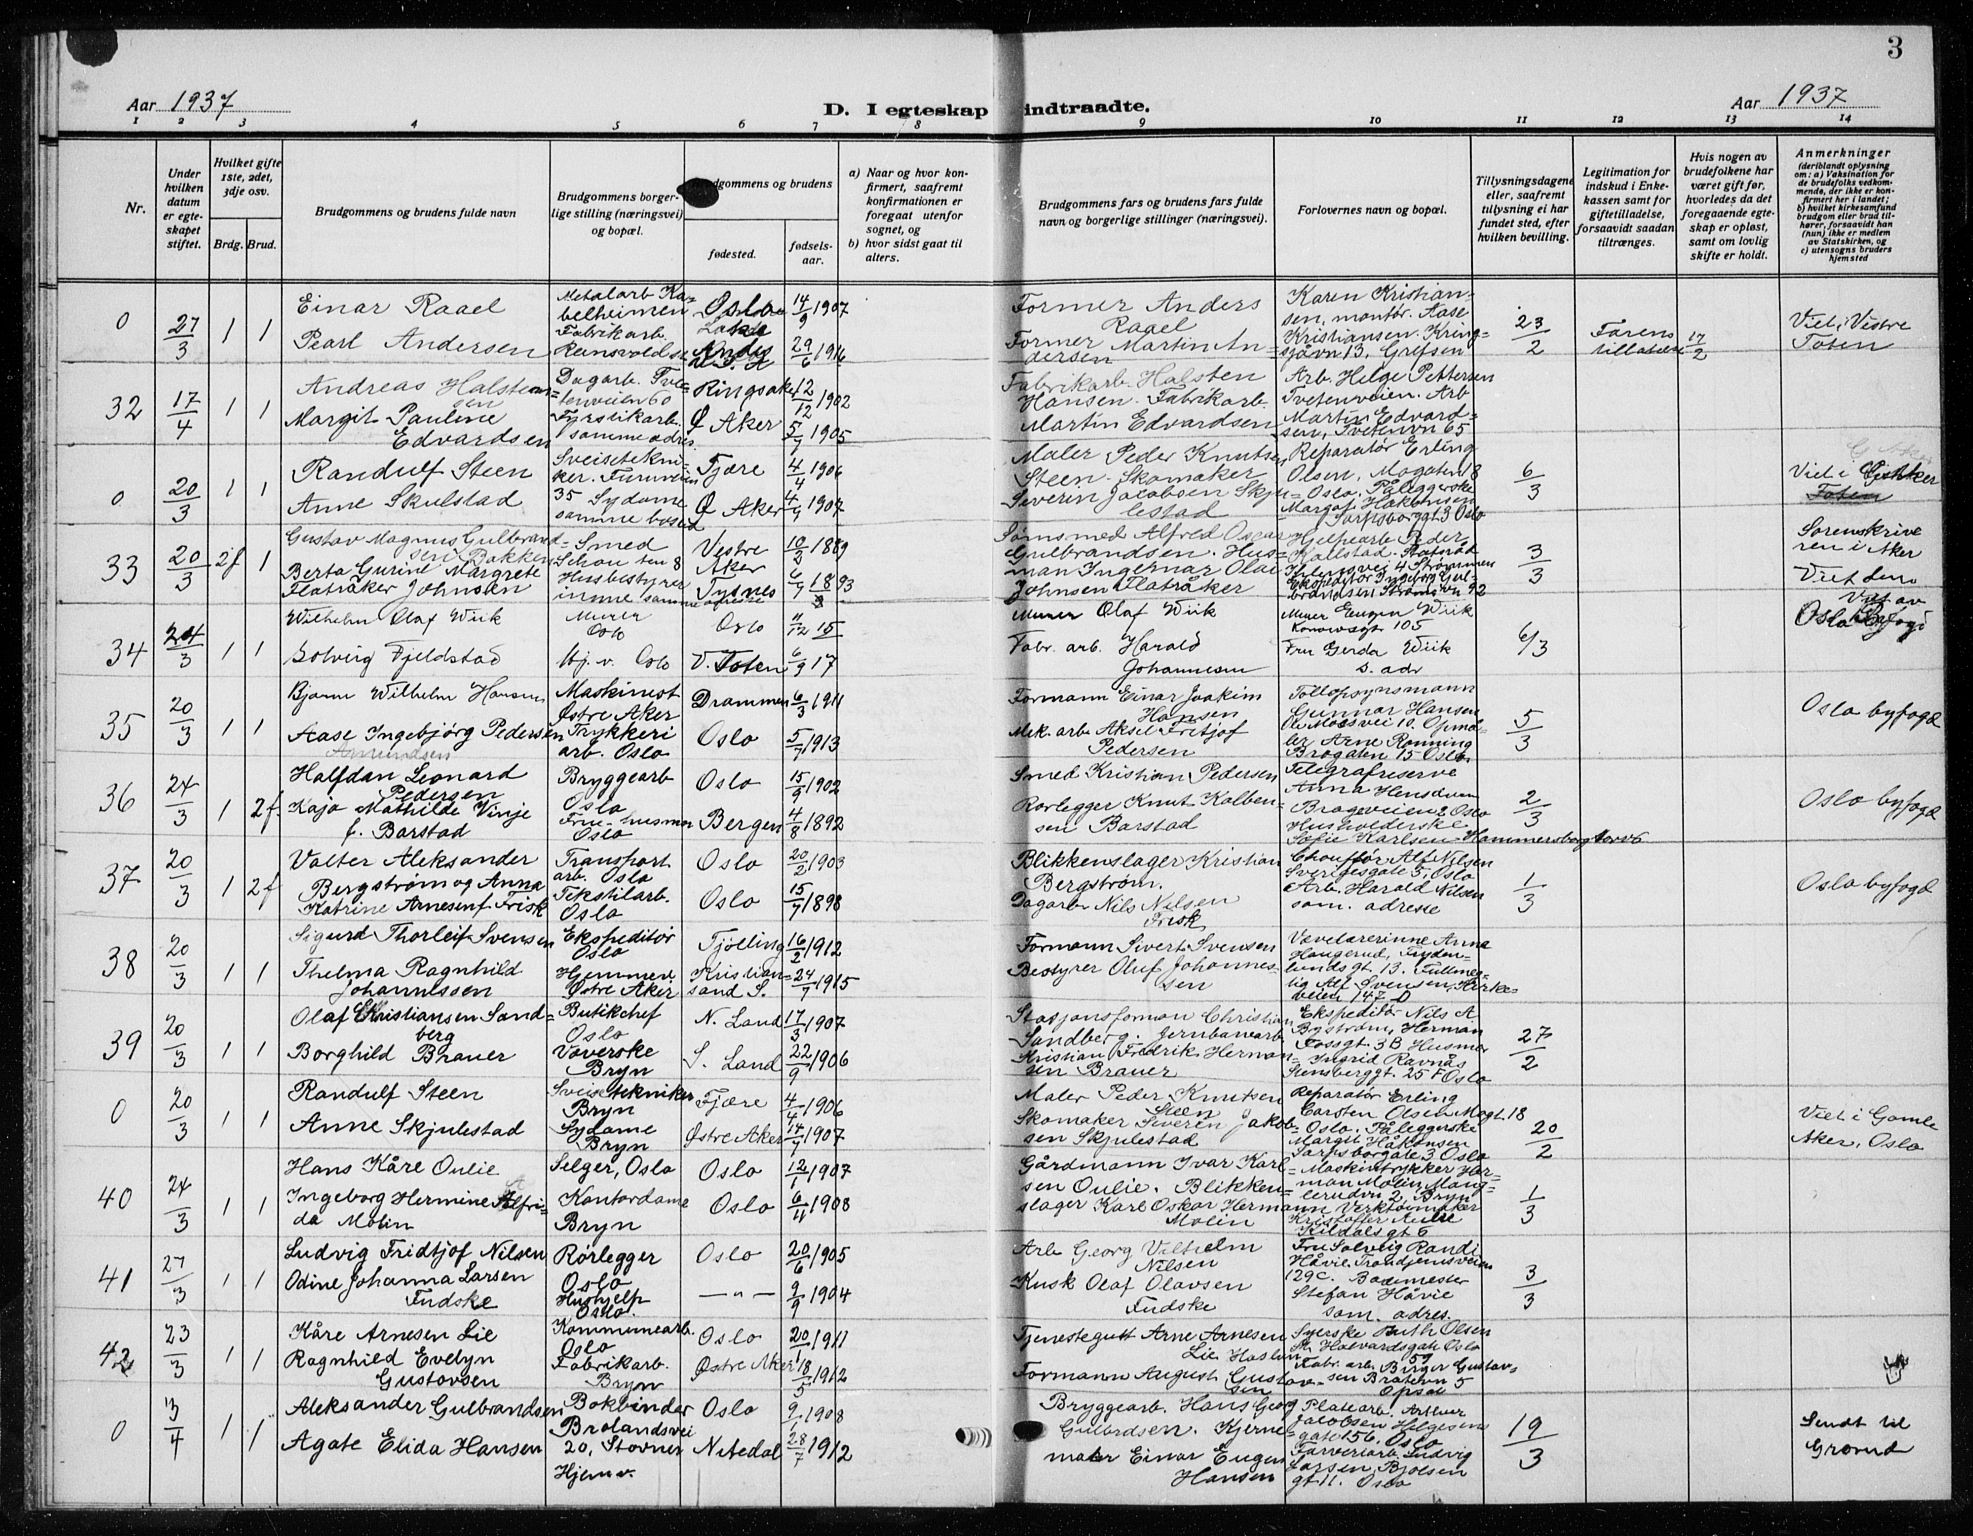 3
Aar 1937
D. I egteskap indtraadte.
Aar 1937
1 2 3 4 5 6 7 8 9 10 11 12 13 14
Nr.
Under hvilken datum er egteskapet stiftet.
Hvilket gifte 1ste, 2det, 3dje osv.
Brdg. Brud.
Brudgommens og brudens fulde navn
Brudgommens borgerlige stilling (næringsvei) og bopæl.
dgommens og brudens
fødested.
fødselsaar.
a) Naar og hvor konfirmert, saafremt konfirmationen er foregaat utenfor sognet, og
b) hvor sidst gaat til alters.
Brudgommens fars og brudens fars fulde navn og borgerlige stillinger (næringsvei).
Forlovernes navn og bopæl.
Tillysningsdagene eller, saafremt tillysning ei har fundet sted, efter hvilken bevilling.
Legitimation for indskud i Enkekassen samt for giftetilladelse, forsaavidt saadan tiltrænges.
Hvis nogen av brudefolkene har været gift før, hvorledes da det foregaaende egteskap er opløst, samt om lovlig skifte er holdt.
Anmerkninger
(deriblandt oplysning om: a) Vaksination for de brudefolks vedkommende, der ikke er konfirmert her i landet; b) hvilket kirkesamfund brudgom eller brud tilhører, forsaavidt han (hun) ikke er medlem av Statskirken, og c) utensogns bruders hjemsted
0 27/3 1 1
Einar Raael
Metalarb Kabelheimen
Oslo 14/9 1907
Former Anders Raael
Karen Kristiansen, montør. Aase
23/2
Pearl Andersen
Fabrikarb.
29/6 1916
Former Martin Andersen
Viet i Vestre Toten
32 17/4 1 1
Andreas Halstensen
Dagarb. Tvetenveien 60
Ringsaker 12/12 1902
Fabrikarb. Halsten Hansen. Fabrikarb.
Arb. Helge Pettersen Tvetenveien. Arb
Margit Pauline Edvardsen
Fyrstikarb. samme adres
Ø Aker 5/7 1905
Martin Edvardsen
Martin Edvardsen, Tvetenvn 65
0 20/3 1 1
Randulf Steen
Sveisetekniker. Furuveien 35
Fjære 4/4 1906
Maler Peder Knutsen Steen. Skomaker
Reparatør Erling Olsen, Mogaten 18 Oslo.
6/3
Anne Skulstad
Sydame samme bosted
Ø Aker
Severin Jacobsen Skjulestad
Sarpsborggt 3 Oslo
33 20/3 2f 1
Gustav Magnus Gulbrandsen Bakken
Smed
Vestre Aker 10/3 1889
Alfred Oscar Gulbrandsen. Husman Ingemar Olai
3/3
Sorenskriveren i Aker
Berta Gurine Margrete Flatråker Johnsen
Husbestyrerinne samme adresse
Tysnes 6/9 1893
Johnsen Flatråker
34 24/3 1 1
Wilhelm Olaf Wiik
Murer Oslo
Oslo 11/12 15
Murer Olaf Wiik
Murer Eugen Wiik Konowsgt 105
6/3
Solveig Fjeldstad
Hj. v. Oslo
V. Toten 6/9 17
Fabr. arb. Harald Johannesen
Fru Gerda Wiik s. adr
35 20/3 1 1
Bjarne Wilhelm Hansen
Maskinist Østre Aker
Drammen 6/3 1911
Formann Einar Joakim Hansen
Tollopsynsmann Gunnar Hansen
5/3
Oslo byfogd
Aase Ingebjørg Pedersen
Amundsen
Trykkeriarb. Oslo
Oslo 5/7 1913
Mek. arb. Aksel Fritjof Pedersen
Arne Rønning Brogaten 15 Oslo
36 24/3 1 2f.
Halfdan Leonard Pedersen
Bryggearb Oslo
Oslo 15/9 1902
Smed Kristian Pedersen
Telegrafreserve Anna
2/3
Oslo byfogd
Kaja Mathilde Vinje f. Barstad
Frue-husmor Oslo
Bergen 4/8 1892
Rørlegger Knut Kolbensen Barstad
Husholderske Sofie Karlsen Hammersborg torv 6
37 20/3 1 2f
Valter Aleksander Bergstrøm og Anna
Transportarb. Oslo
Oslo 20/2 1903
Blikkenslager Kristian Bergstrøm.
Chauffør Alf Nilsen Sverigesgate 5, Oslo
1/3
Oslo byfogd
Katrine Arnesen f. Frisk
Tekstilarb. Oslo
Oslo 15/7 1898
Dagarb Nils Nilsen Frisk
Arb. Harald Nilsen som. adreste
38 20/3 1 1
Sigurd Thorleif Svensen
Ekspeditør Oslo
Tjølling 16/2 1912
Formann Sivert Svensen
Vævelærerinne Anna Haugerud, Frydenlundsgt. 13.
Thelma Ragnhild Johannessen
Hjemmev Østre Aker
Kristiansand S. 24/7 1915
Bestyrer Oluf Johannessen
Fullmektig Alf Svensen, Kirkeveien 147 D
39 20/3 1 1
Olaf Kristiansen Sandberg
Butikchef Oslo
N. Land 17/3 1907
Stasjonsformann Christian Sandberg. Jernbanearb
Ekspeditør Nils A. Bystrøm, Herman Fossgt. 3B
27/2
Borghild Brauer
Væverske Bryn
S. Land 22/9 1906
Kristian Fredrik Hermansen Brauer
Husmor Ingrid Ravnås Stensberggt. 25 F Oslo
0 20/3 1 1
Randulf Steen
Sveisetekniker Bryn
Fjære 4/4 1906
Maler Peder Knutsen Steen
Reparatør Erling Carsten Olsen Mogt. 18 Oslo.
20/2
Viet i Gamle Aker, Oslo
Anne Skjulestad
Sydame Bryn
Østre Aker 14/7 1907
Skomaker Severin Jakobsen Skjulestad
Påleggerske Margit Håkonsen Sarpsborgate 3 Oslo
40 24/3 1 1
Hans Kåre Oulie
Selger, Oslo
Oslo 12/1 1907
Gårdmann Ivar Karlsen Oulie. Blikkenslager
Maskintrykker Herman Molin, Manglerudvn 2, Bryn
1/3
Ingeborg Hermine Alfrida Molin
Kontordame Bryn
Oslo 6/11 1908
Karl Oskar Hermann Molin
Verktøimaker Kristoffer Kildalsgt 6
41 27/3 1 1
Ludvig Fridtjof Nilsen
Rørlegger Oslo
Oslo 20/6 1905
Arb Georg Vilhelm Nilsen
Fru Solveig Randi Håvie, Trondjemsveien 129c.
3/3
Odine Johanna Larsen Fudske
Hushjelp Oslo.
— " — 9/9 1904
Kusk Olaf Olavsen Fudske
Bademester Stefan Håvie som. adres.
42 23/3 1 1
Kåre Arnesen Lie
Kommunearb. Oslo
Oslo 20/1 1911
Tjenestegutt Arne Arnesen Lie
Syerske Ruth Olsen St. Halvardsgate Oslo 59
Ragnhild Evelyn Gustavsen
Fabrikarb. Bryn
Østre Aker 18/5 1912
Formann August Gustavsen
Fabr. arb. Birger Gustavsen Bratevn 5 Opsal
0 13/4 1 1
Aleksander Gulbrandsen
Bokbinder Brolandsvei 20, Stovner
Oslo 9/1 1908
Bryggearb. Hans Georg Gulbrdsen.
Platearb. Arthur Jacobsen Helgesensgate 156, Oslo
19/3
Sendt til Grorud
Agate Elida Hansen
Hjemv.
Nitedal 28/7 1912
Kjernemaker Einar Eugen Hansen
Farveriarb. Ludvig Larsen, Bjølsengt 11. Oslo